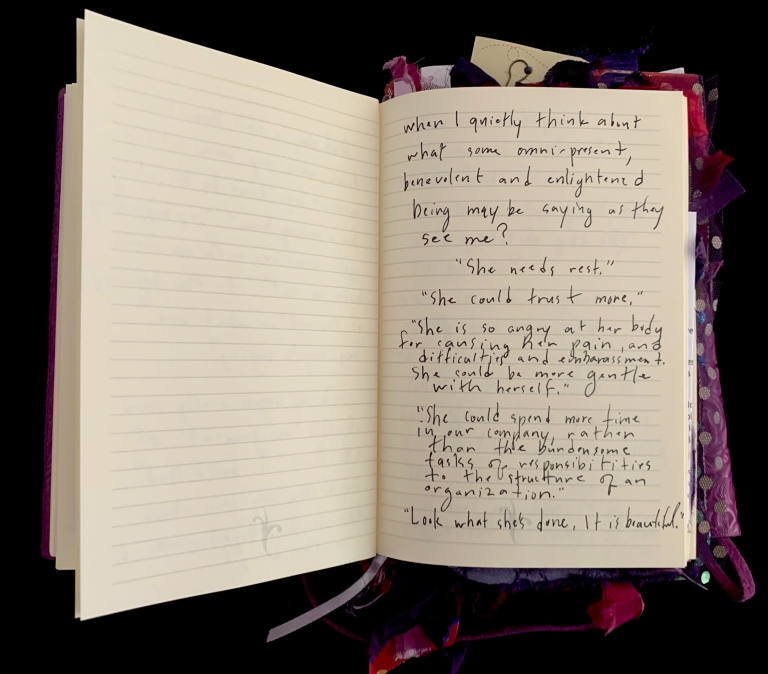 when I quietly think about
what some omni-present,
benevolent and enlightened
being may be saying as they
see me?
"She needs rest."
"She could trust more."
"She is so angry at her body
for causing her pain and
difficulties and embarassment.
She could be more gentle
with herself."
"She could spend more time
in our company, rather
than the burdensome
tasks of responsibilities
to the structure of an
organization."
"Look what she's done, It is beautiful."